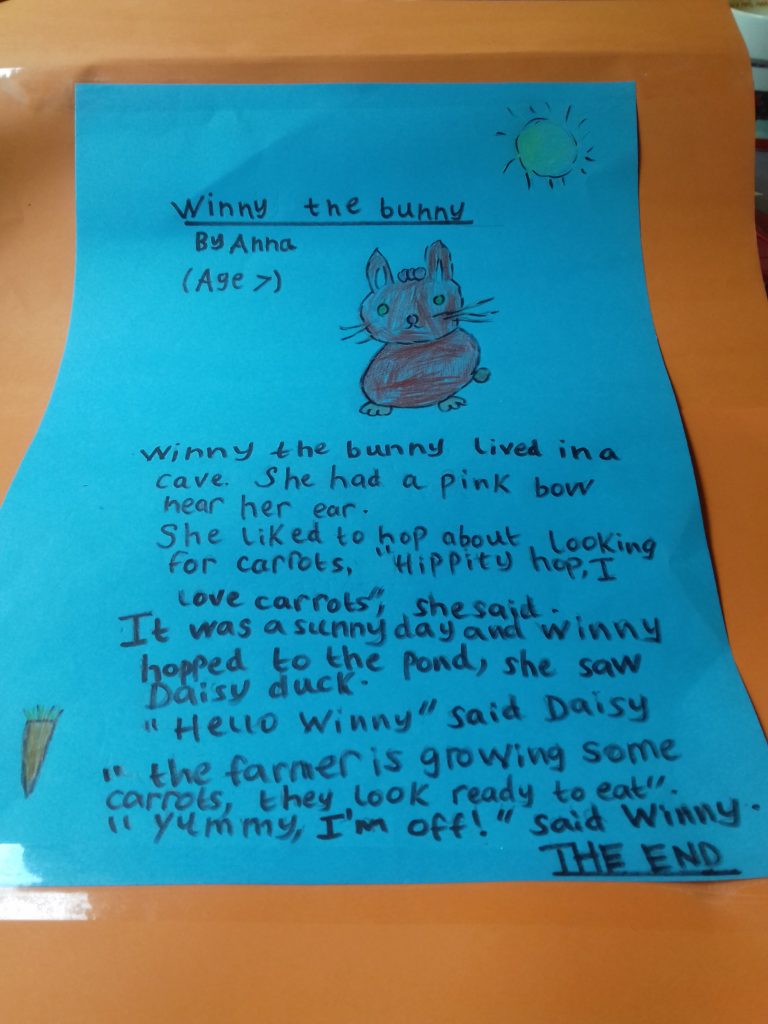 Winny the bunny
By Anna
(Age 7)
Winny the bunny lived in a
cave. She had a pink bow
near her ear.
She liked to hop about looking
for carrots, "Hippity hop, I
love carrots", she said.
It was a sunny day and Winny
hopped to the pond, she saw
Daisy duck.
"Hello Winny" said Daisy
"the farmer is growing some
carrots, they look ready to eat".
"Yummy, I'm off!" said Winny.
THE END